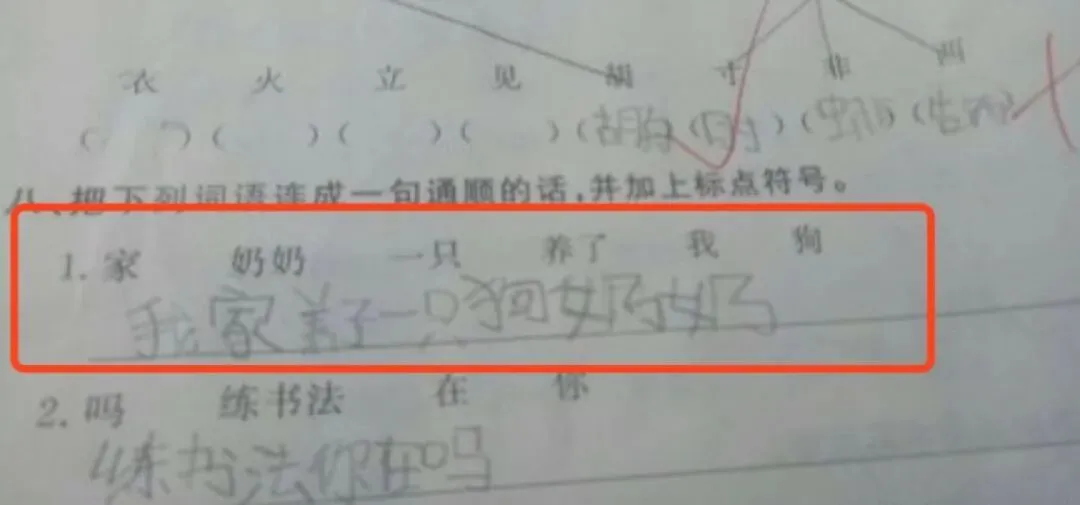 衣 火 立 见 胡 寸 非 西
( ) ( ) ( ) ( ) (胡 ) ( ) ( ) ( )
八、把下列词语连成一句通顺的话,并加上标点符号。
1. 家 奶奶 一只 养了 我 狗
我家养了一只狗奶奶
2. 吗 练书法 在 你
练书法你在吗